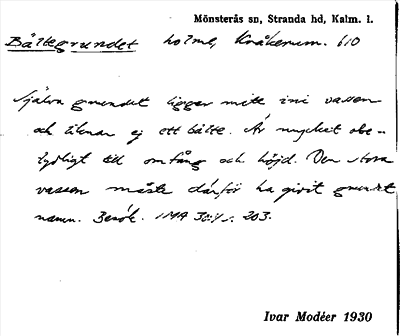 Mönsterås sn, Stranda hd, Kalm. l.
Bältegrundet holme, Kråkerum. 610
Själva grundet ligger mitt ini vassen
och liknar ej ett bälte. Är mycket obe-
tydligt till omfång och höjd. Den stora
vassen måste därför ha givit grundet
namn. Besök. IMA 30:1 s. 203.
Ivar Modéer 1930